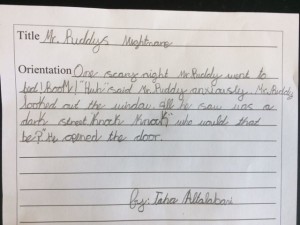 Title Mr. Ruddys Nightmare
Orientation One scary night Mr. Ruddy went to
bed! BooM! "Huh" said Mr. Ruddy anxiously. Mr. Ruddy
looked out the window. All he saw was a
dark street. Knock Knock" who would that
be?" He opened the door.
By: Taha